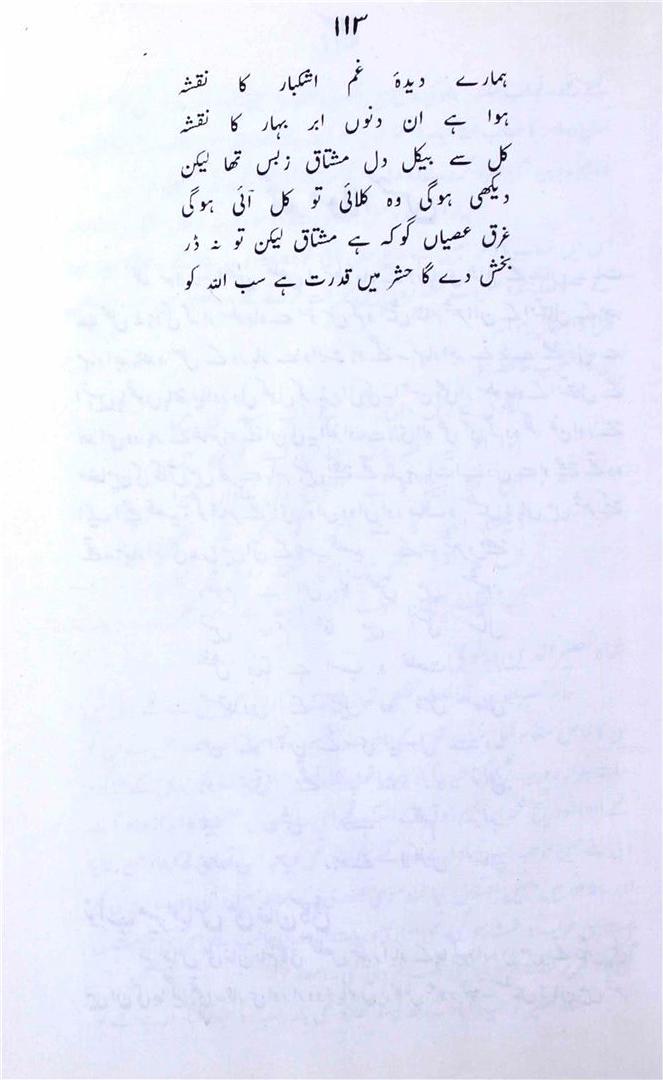 ۱۱۳
ہمارے دیدۂ غم اشکبار کا نقشہ
ہوا ہے ان دنوں ابر بہار کا نقشہ
کل سے بیکل دل مشتاق زبس تھا لیکن
دیکھی ہوگی وہ کلائی تو کل آئی ہوگی
غرق عصیاں گوکہ ہے مشتاق لیکن تو نہ ڈر
بخش دے گا حشر میں قدرت ہے سب اللہ کو